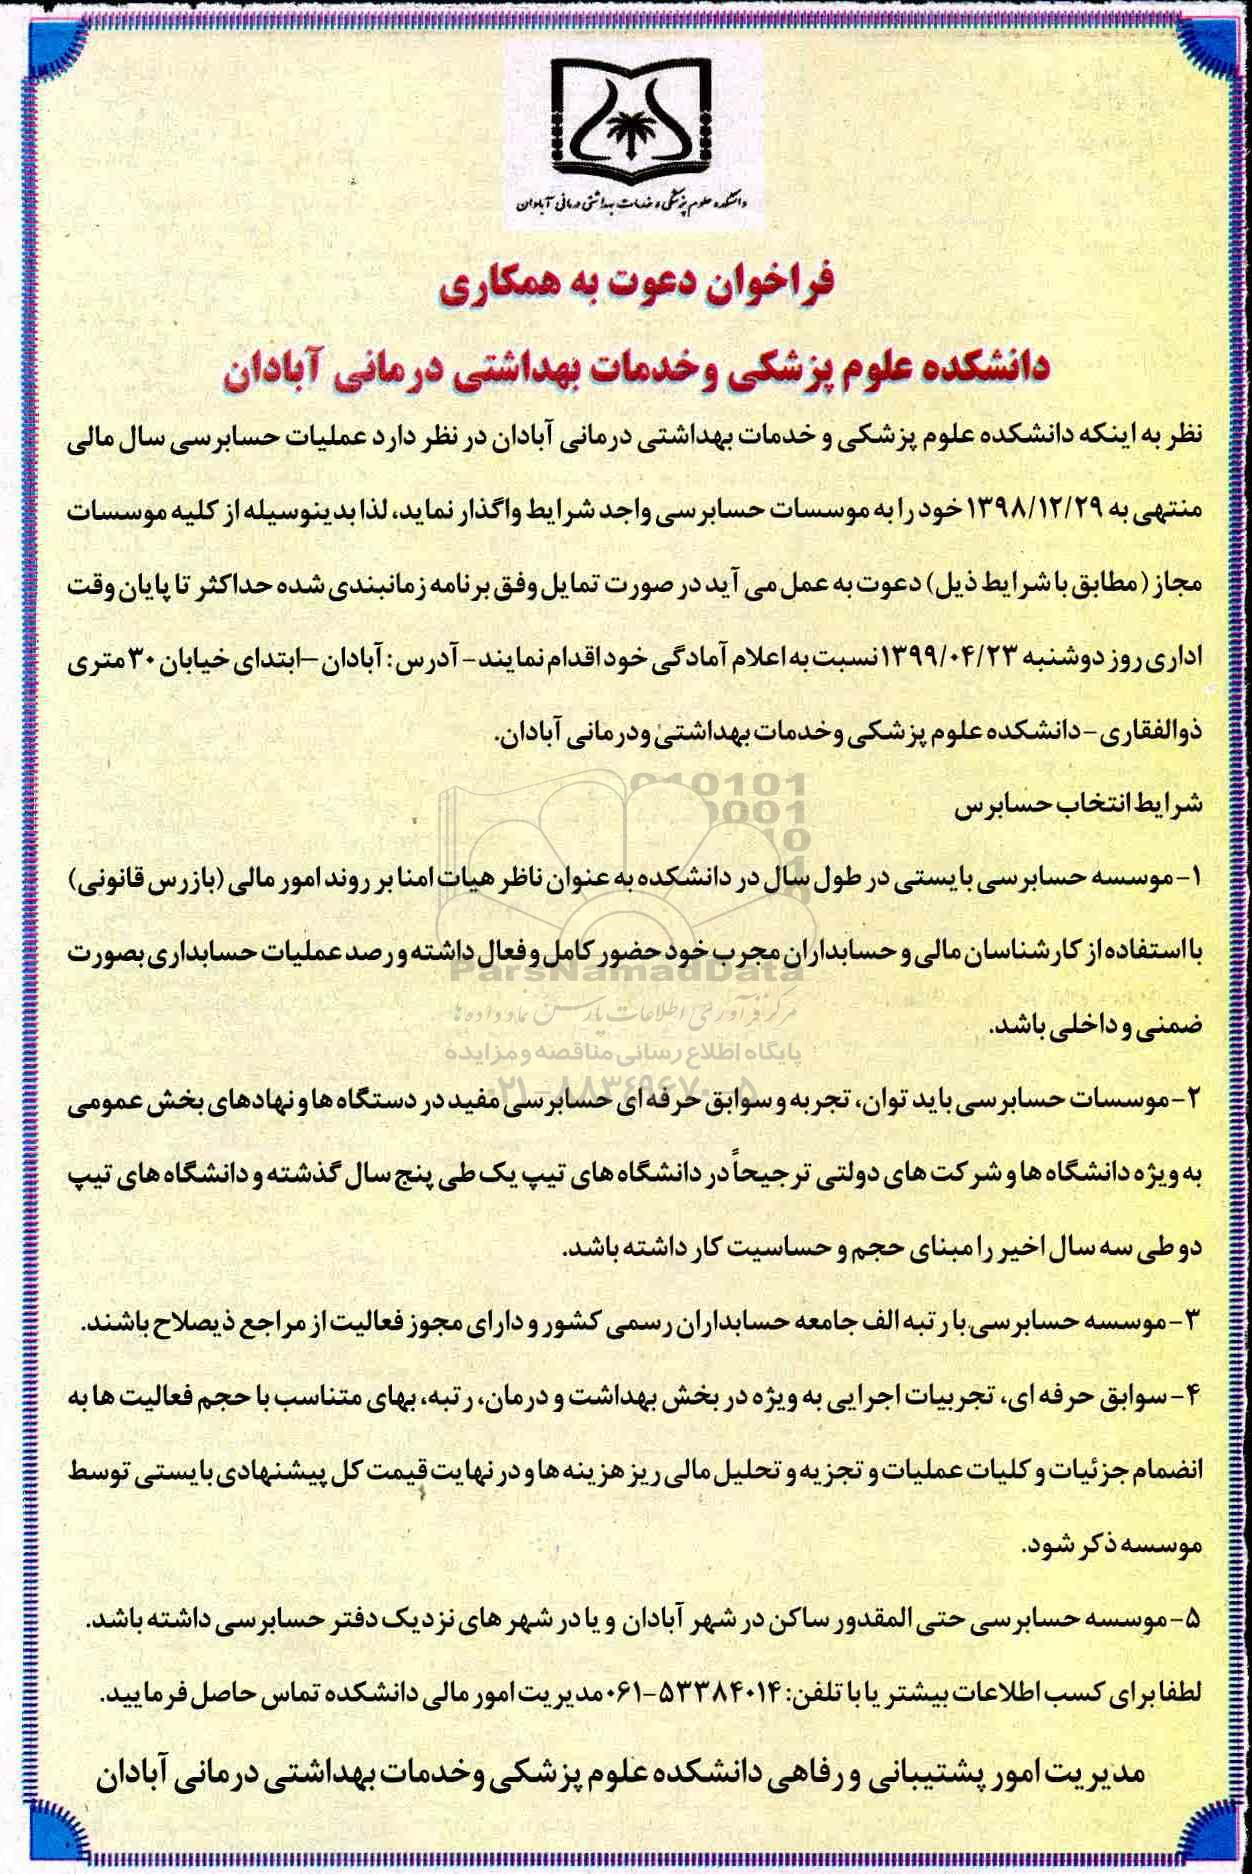 دانشکده علوم پزشکی و خدمات بهداشتی درمانی آبادان
فراخوان دعوت به همکاری
دانشکده علوم پزشکی وخدمات بهداشتی درمانی آبادان
نظر به اینکه دانشکده علوم پزشکی و خدمات بهداشتی درمانی آبادان در نظر دارد عملیات حسابرسی سال مالی
منتهی به ۱۳۹۸/۱۲/۲۹ خود را به موسسات حسابرسی واجد شرایط واگذار نماید، لذا بدینوسیله از کلیه موسسات
مجاز (مطابق با شرایط ذیل) دعوت به عمل می آید در صورت تمایل وفق برنامه زمانبندی شده حداکثر تا پایان وقت
اداری روز دوشنبه ۱۳۹۹/۰۴/۲۳ نسبت به اعلام آمادگی خود اقدام نمایند- آدرس: آبادان –ابتدای خیابان ۳۰ متری
ذوالفقاری-دانشکده علوم پزشکی وخدمات بهداشتی ودرمانی آبادان.
شرایط انتخاب حسابرس
۱-موسسه حسابرسی بایستی در طول سال در دانشکده به عنوان ناظر هیات امنا بر روند امور مالی (بازرس قانونی)
با استفاده از کارشناسان مالی و حسابداران مجرب خود حضور کامل و فعال داشته و رصد عملیات حسابداری بصورت
ضمنی و داخلی باشد.
۲-موسسات حسابرسی باید توان، تجربه و سوابق حرفه ای حسابرسی مفید در دستگاه ها و نهادهای بخش عمومی
به ویژه دانشگاه ها و شرکت های دولتی ترجیحاً در دانشگاه های تیپ یک طی پنج سال گذشته و دانشگاه های تیپ
دو طی سه سال اخیر را مبنای حجم و حساسیت کار داشته باشد.
۳-موسسه حسابرسی با رتبه الف جامعه حسابداران رسمی کشور و دارای مجوز فعالیت از مراجع ذیصلاح باشند.
۴-سوابق حرفه ای، تجربیات اجرایی به ویژه در بخش بهداشت و درمان، رتبه، بهای متناسب با حجم فعالیت ها به
انضمام جزئیات و کلیات عملیات و تجزیه و تحلیل مالی ریز هزینه ها و در نهایت قیمت کل پیشنهادی بایستی توسط
موسسه ذکر شود.
۵-موسسه حسابرسی حتی المقدور ساکن در شهر آبادان و یا در شهر های نزدیک دفتر حسابرسی داشته باشد.
لطفا برای کسب اطلاعات بیشتر یا با تلفن: ۵۳۳۸۴۰۱۴-۰۶۱ مدیریت امور مالی دانشکده تماس حاصل فرمایید.
مدیریت امور پشتیبانی و رفاهی دانشکده علوم پزشکی وخدمات بهداشتی درمانی آبادان
ParsNamadData
مرکز فرآوری اطلاعات پارس نماد داده ها
پایگاه اطلاع رسانی مناقصه و مزایده